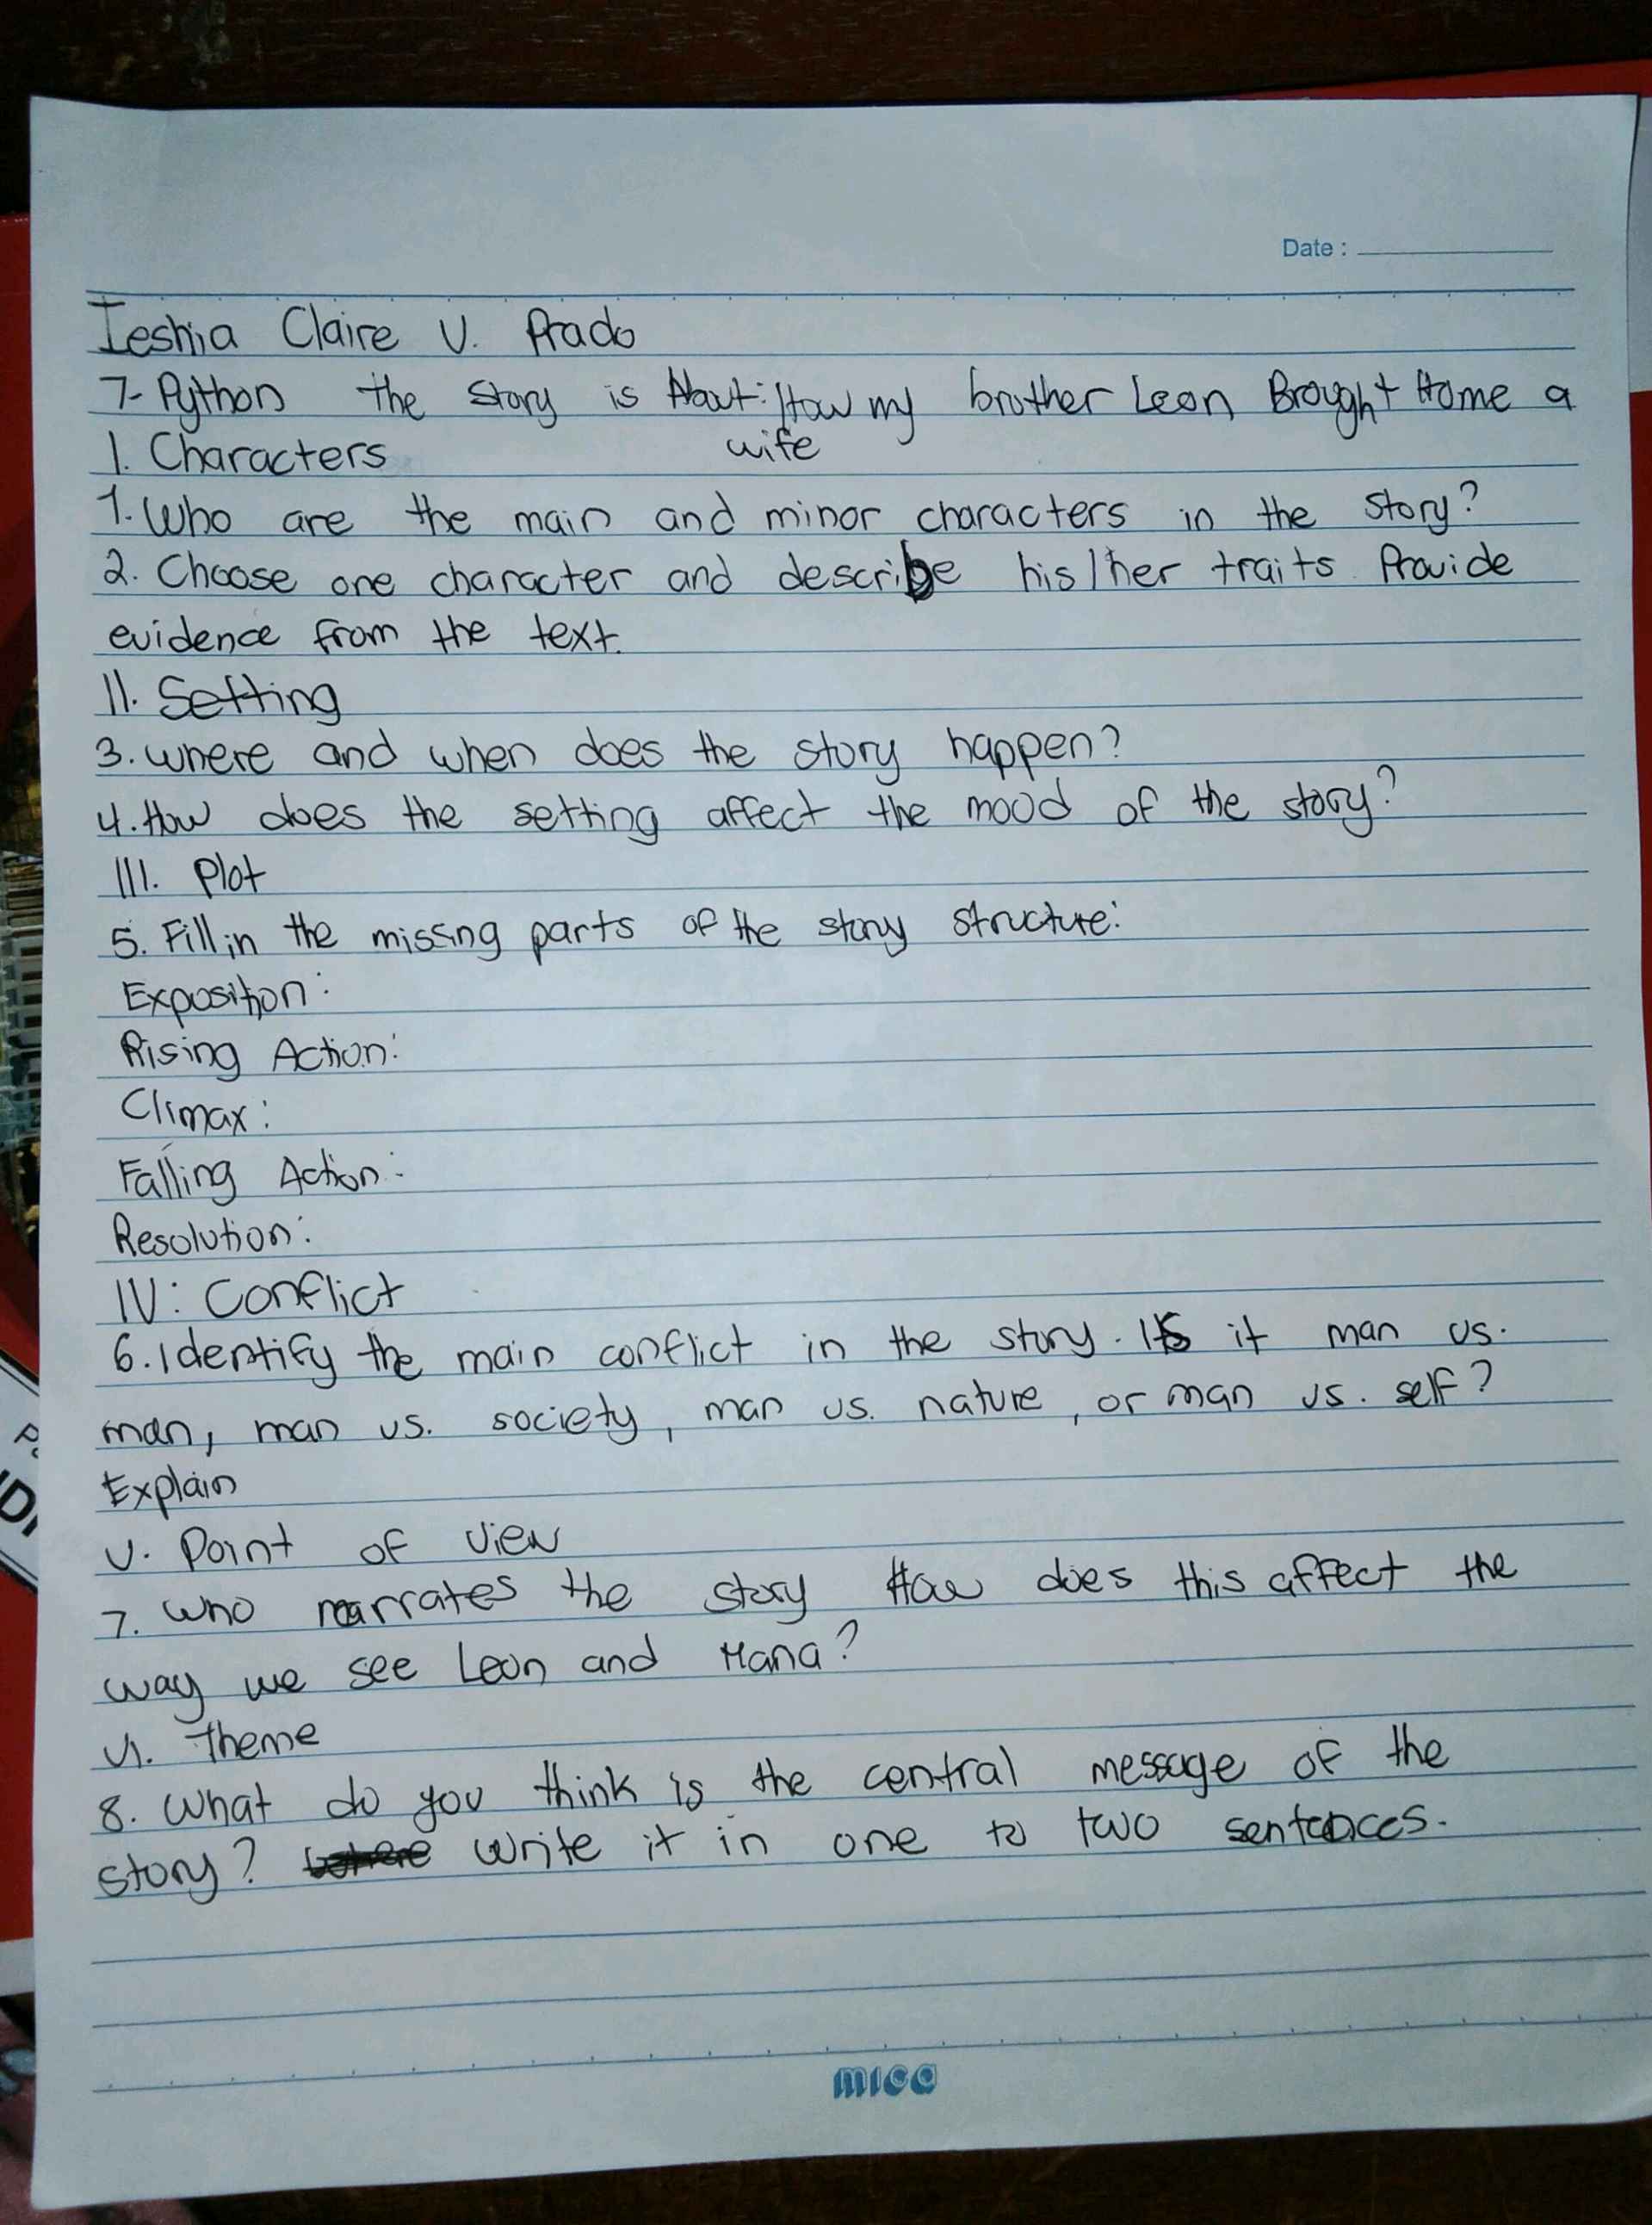 Date :
Ieshia Claire V. Prado
7-Python the story is About: How my brother Leon Brought Home a
wife
I. Characters
1. Who are the main and minor characters in the story?
2. Choose one character and describe his/her traits. Provide
evidence from the text.
II. Setting
3. where and when does the story happen?
4. How does the setting affect the mood of the story?
III. Plot
5. Fill in the missing parts of the story structure:
Exposition:
Rising Action:
Climax:
Falling Action:
Resolution:
IV: Conflict
6. Identify the main conflict in the story. Is it man vs.
man, man vs. society, man vs. nature, or man vs. self?
Explain
V. Point of view
7. Who narrates the story How does this affect the
way we see Leon and Maria?
VI. Theme
8. What do you think is the central message of the
story? Write it in one to two sentences.
mica